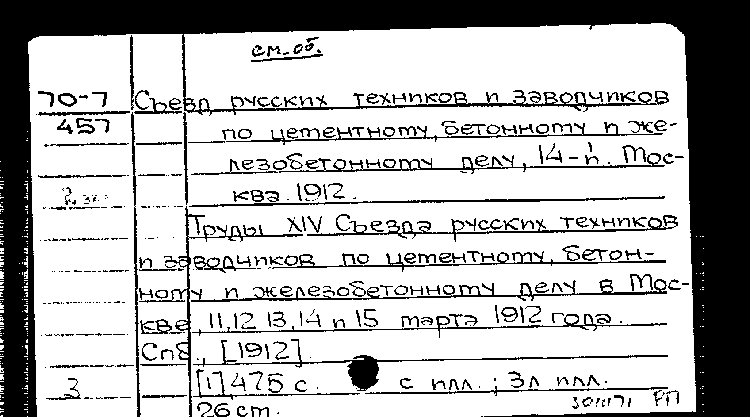 см. об.
70-7 Съезд русских техников и заводчиков
457 по цементному, бетонному и же-
лезобетонному делу, 14-й. Мос-
ква. 1912.
Труды XIV Съезда русских техников
и заводчиков по цементному, бетон-
ному и железобетонному делу в Мос-
кве, 11, 12, 13, 14 и 15 марта 1912 года.
Спб., [1912].
3 [1] 475 с. с илл.; 3л илл.
26 см. РП